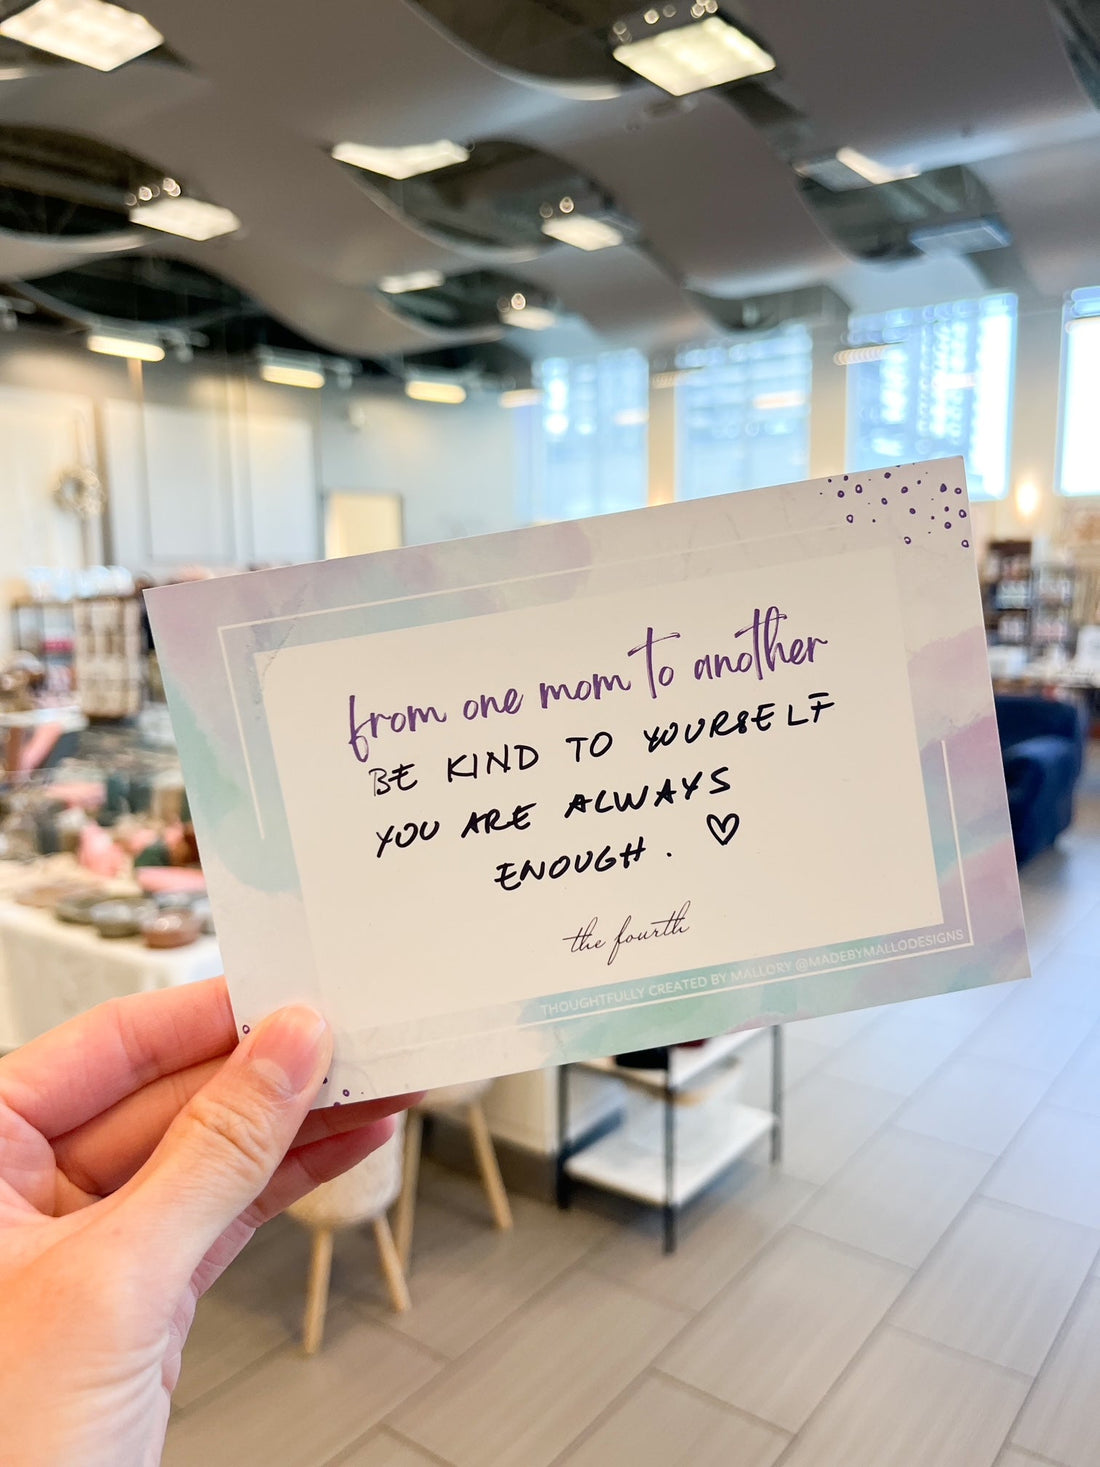 from one mom to another
BE KIND TO YOURSELF
YOU ARE ALWAYS
ENOUGH. ♡
the fourth
THOUGHTFULLY CREATED BY MALLORY @MADEBYMALLODESIGNS